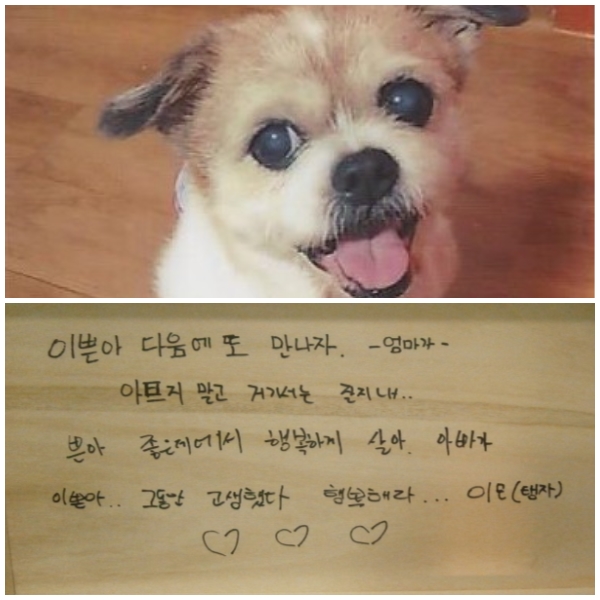 이쁜아 다음에 또 만나자. -엄마가-
아프지 말고 거기서는 잘지내..
쁜아 좋은데에서 행복하게 살아. 아빠가
이쁜아.. 그동안 고생했다 행복해라... 이모(탱자)
♡ ♡ ♡